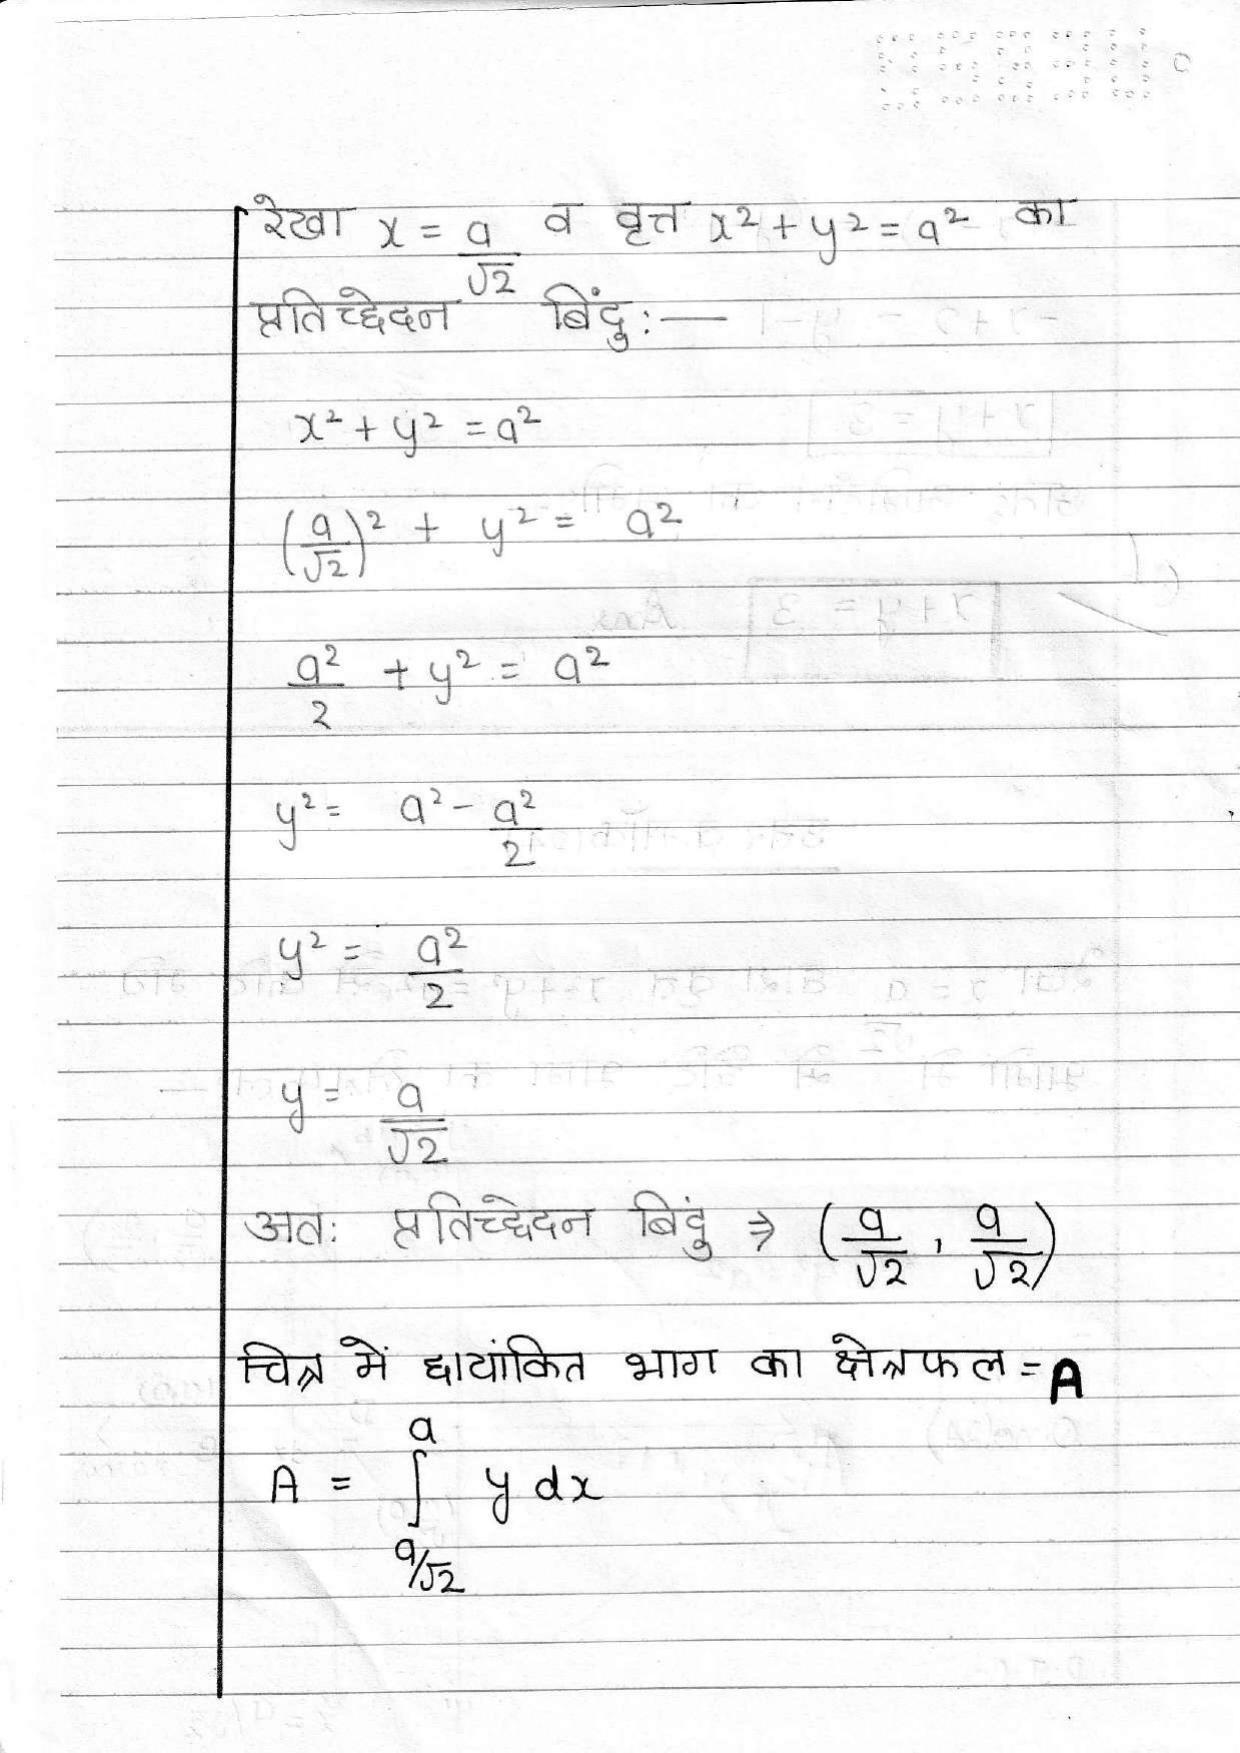 रेखा x = a/√2 व वृत्त x² + y² = a² का
प्रतिच्छेदन बिंदु :—
x² + y² = a²
(a/√2)² + y² = a²
a²/2 + y² = a²
y² = a² - a²/2
y² = a²/2
y = a/√2
अतः प्रतिच्छेदन बिंदुं ⇒ (a/√2 , a/√2)
चित्र में छायांकित भाग का क्षेत्रफल = A
A = ∫_{a/√2}^{a} y dx